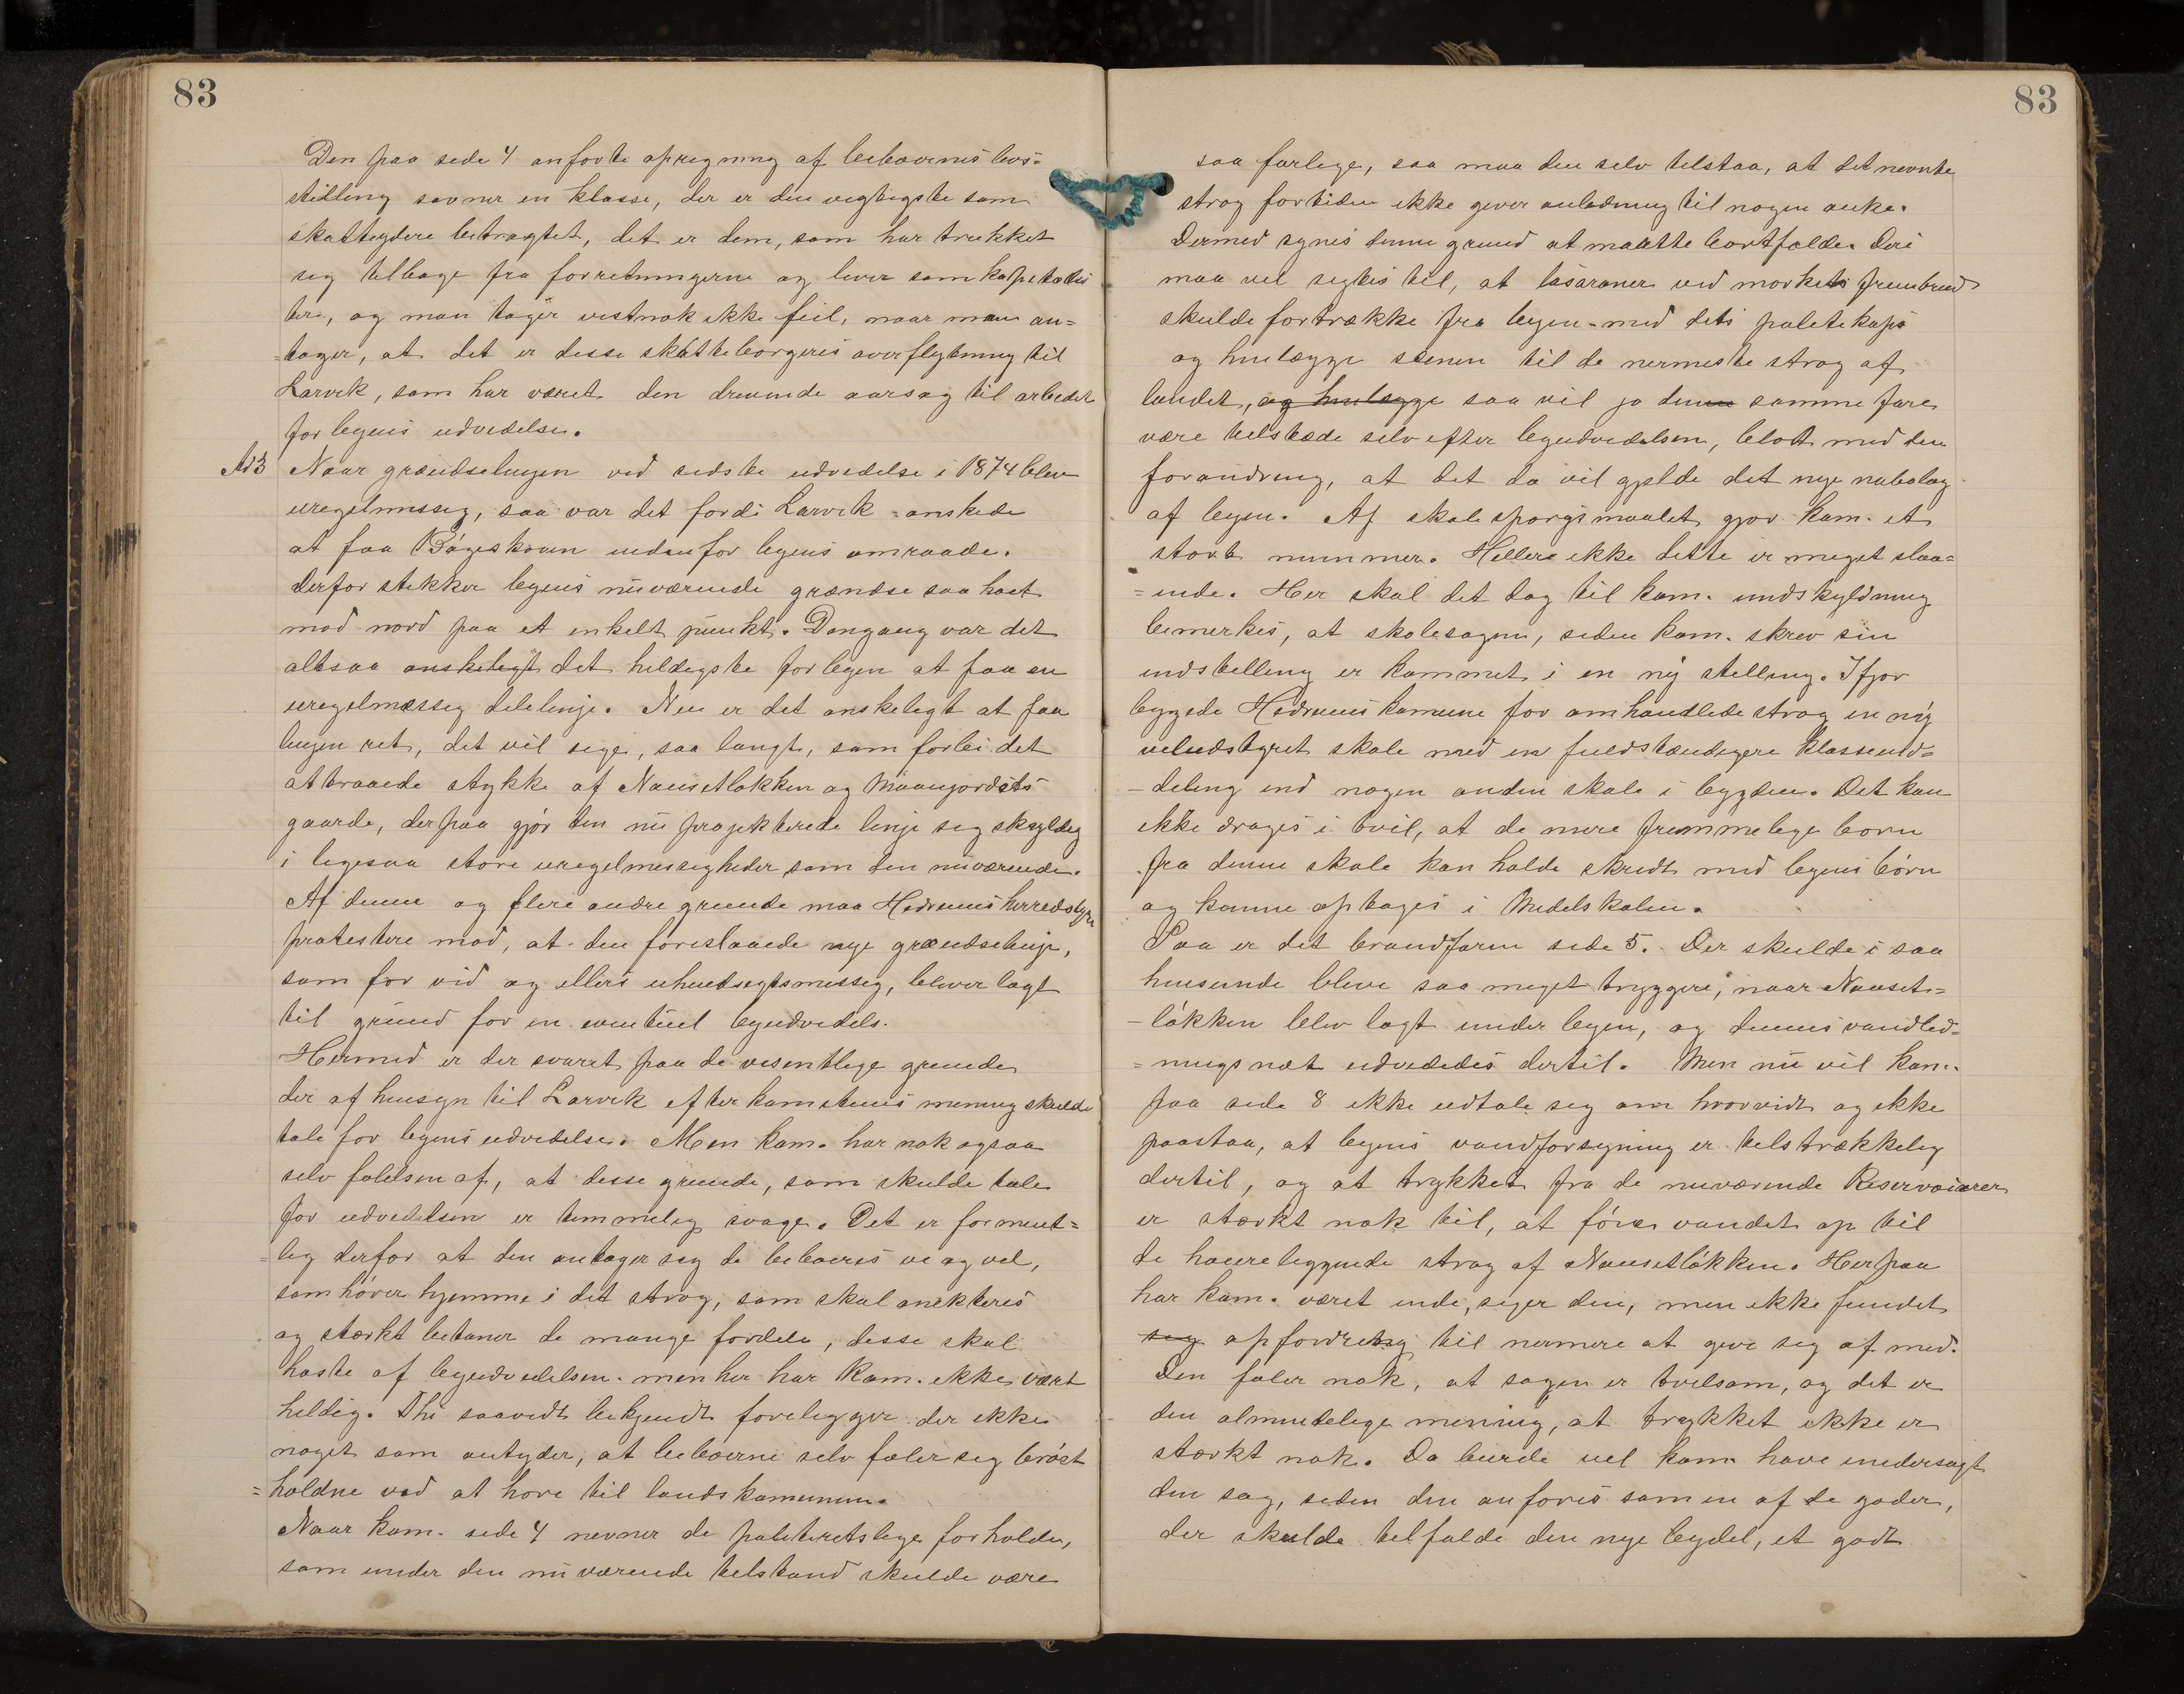 83
Den paa side 4 anførte opregning af beboernes livs=
stilling savner en klasse, der er den vegtigste som
skatteydere betragtet, det er dem, som har trukket
seg tilbage fra forretningerne og lever som kapitalis
ter, og man tager vistnok ikke feil, naar man an=
=tager, at det er desse skatteborgeres overflytning til
Larvik, som har været den drivende aarsag til arbeidet
for byens udvidelse.
Ad 3 Naar grændselinjen ved sidste udvidelse i 1874 blev
uregelmessig, saa var det fordi Larvik ønskede
at faa Bøgeskoven indenfor byens omraade.
derfor stikker byens nuværende grændse saa høit
mod nord paa et enkelt punkt. Dengang var det
altsaa ønskeligt det heldigste for byen at faa en
uregelmæssig delelinje. Nu er det ønskeligt at faa
linjen ret, det vil sige, saa langt, som forbi det
attraaede stykke af Nansetløkken og Maanejordets
gaarde, derpaa gjør den nu projekterede linje seg skyldig
i ligesaa store uregelmessigheder som den nuværende.
Af denne og flere andre grunde maa Hedrums herredstyre
protestere mod, at den foreslaaede nye grændselinje,
som for vid og ellers uhensegtsmessig, bliver lagt
til grund for en eventuel byudvidels.
Hermed er der svaret paa de vesentlige grunde
der af hensyn til Larvik efter komiteens mening skulde
tale for byens udvidelse. Men kom. har nok ogsaa
selv følelsen af, at desse grunde, som skulde tale
for udvidelsen er temmelig svage. Det er forment=
=lig derfor at den antager seg de beboeres ve og vel,
som hører hjemme i det strøg, som skal anekteres
og stærkt betoner de mange fordele, desse skal
høste af byudvidelsen. men her har kom. ikke vært
heldig. Thi saavidt bekjendt foreligger der ikke
noget som antyder, at beboerne selv føler seg brøst
=holdne ved at høre til landskommunen.
Naar kom. side 4 nevner de politiretslige forholde,
som under den nuværende tilstand skulde være
83
saa farlige, saa maa den selv tilstaa, at det nevnte
strøg fortiden ikke giver anledning til nogen anke.
Dermed synes denne grund at maatte bortfalde. Deri
maa vel sigtes til, at lasaroner ved mørkets frembrud
skulde fortrække fra byen med dets politikaps
og henlægge scenen til de nermeste strøg af
landet, og henlægge saa vil jo denne samme fare
være tilstede selv efter byudvidelsen, blot med den
forandring, at det da vil gjelde det nye nabolag
af byen. Af skolespørgsmaalet gjør kom. et
stort nummer. Hellers ikke dette er meget slaa=
=ende. Her skal det dog til kom. undskyldning
bemerkes, at skolesagen, siden kom. skrev sin
indstelling er kommet i en ny stelling. Ifjor
bygede Hedrums komune for omhandlede strøg en ny
veludstyret skole med en fuldstændigere klasseind=
-deling end nogen anden skole i bygden. Det kan
ikke drages i tvil, at de mere fremmelige børn
fra denne skole kan holde skridt med byens børn
og kunne optages i Middelskolen.
Saa er det brandfaren side 5. Der skulde i saa
henseende blive saa meget tryggere, naar Nanset=
-løkken blev lagt under byen, og dennes vandled=
=ningsnæt udvidedes dertil. Men nu vil kom.
paa side 8 ikke udtale seg om hvorvidt og ikke
paastaa, at byens vandforsyning er tilstrækkelig
dertil, og at trykket fra de nuværende Reservoiarer
er stærkt nok til, at føre vandet op til
de høiere liggende strøg af Nansetløkken. Herpaa
har kom. været inde, siger den, men ikke fundet
seg opfordret seg til nermere at give seg af med.
Den føler nok, at sagen er tvilsom, og det er
den almindelige mening, at trykket ikke er
stærkt nok. Da burde vel kom have undersøgt
den sag, siden den anføres som en af de goder,
der skulde tilfalde den nye bydel, et godt